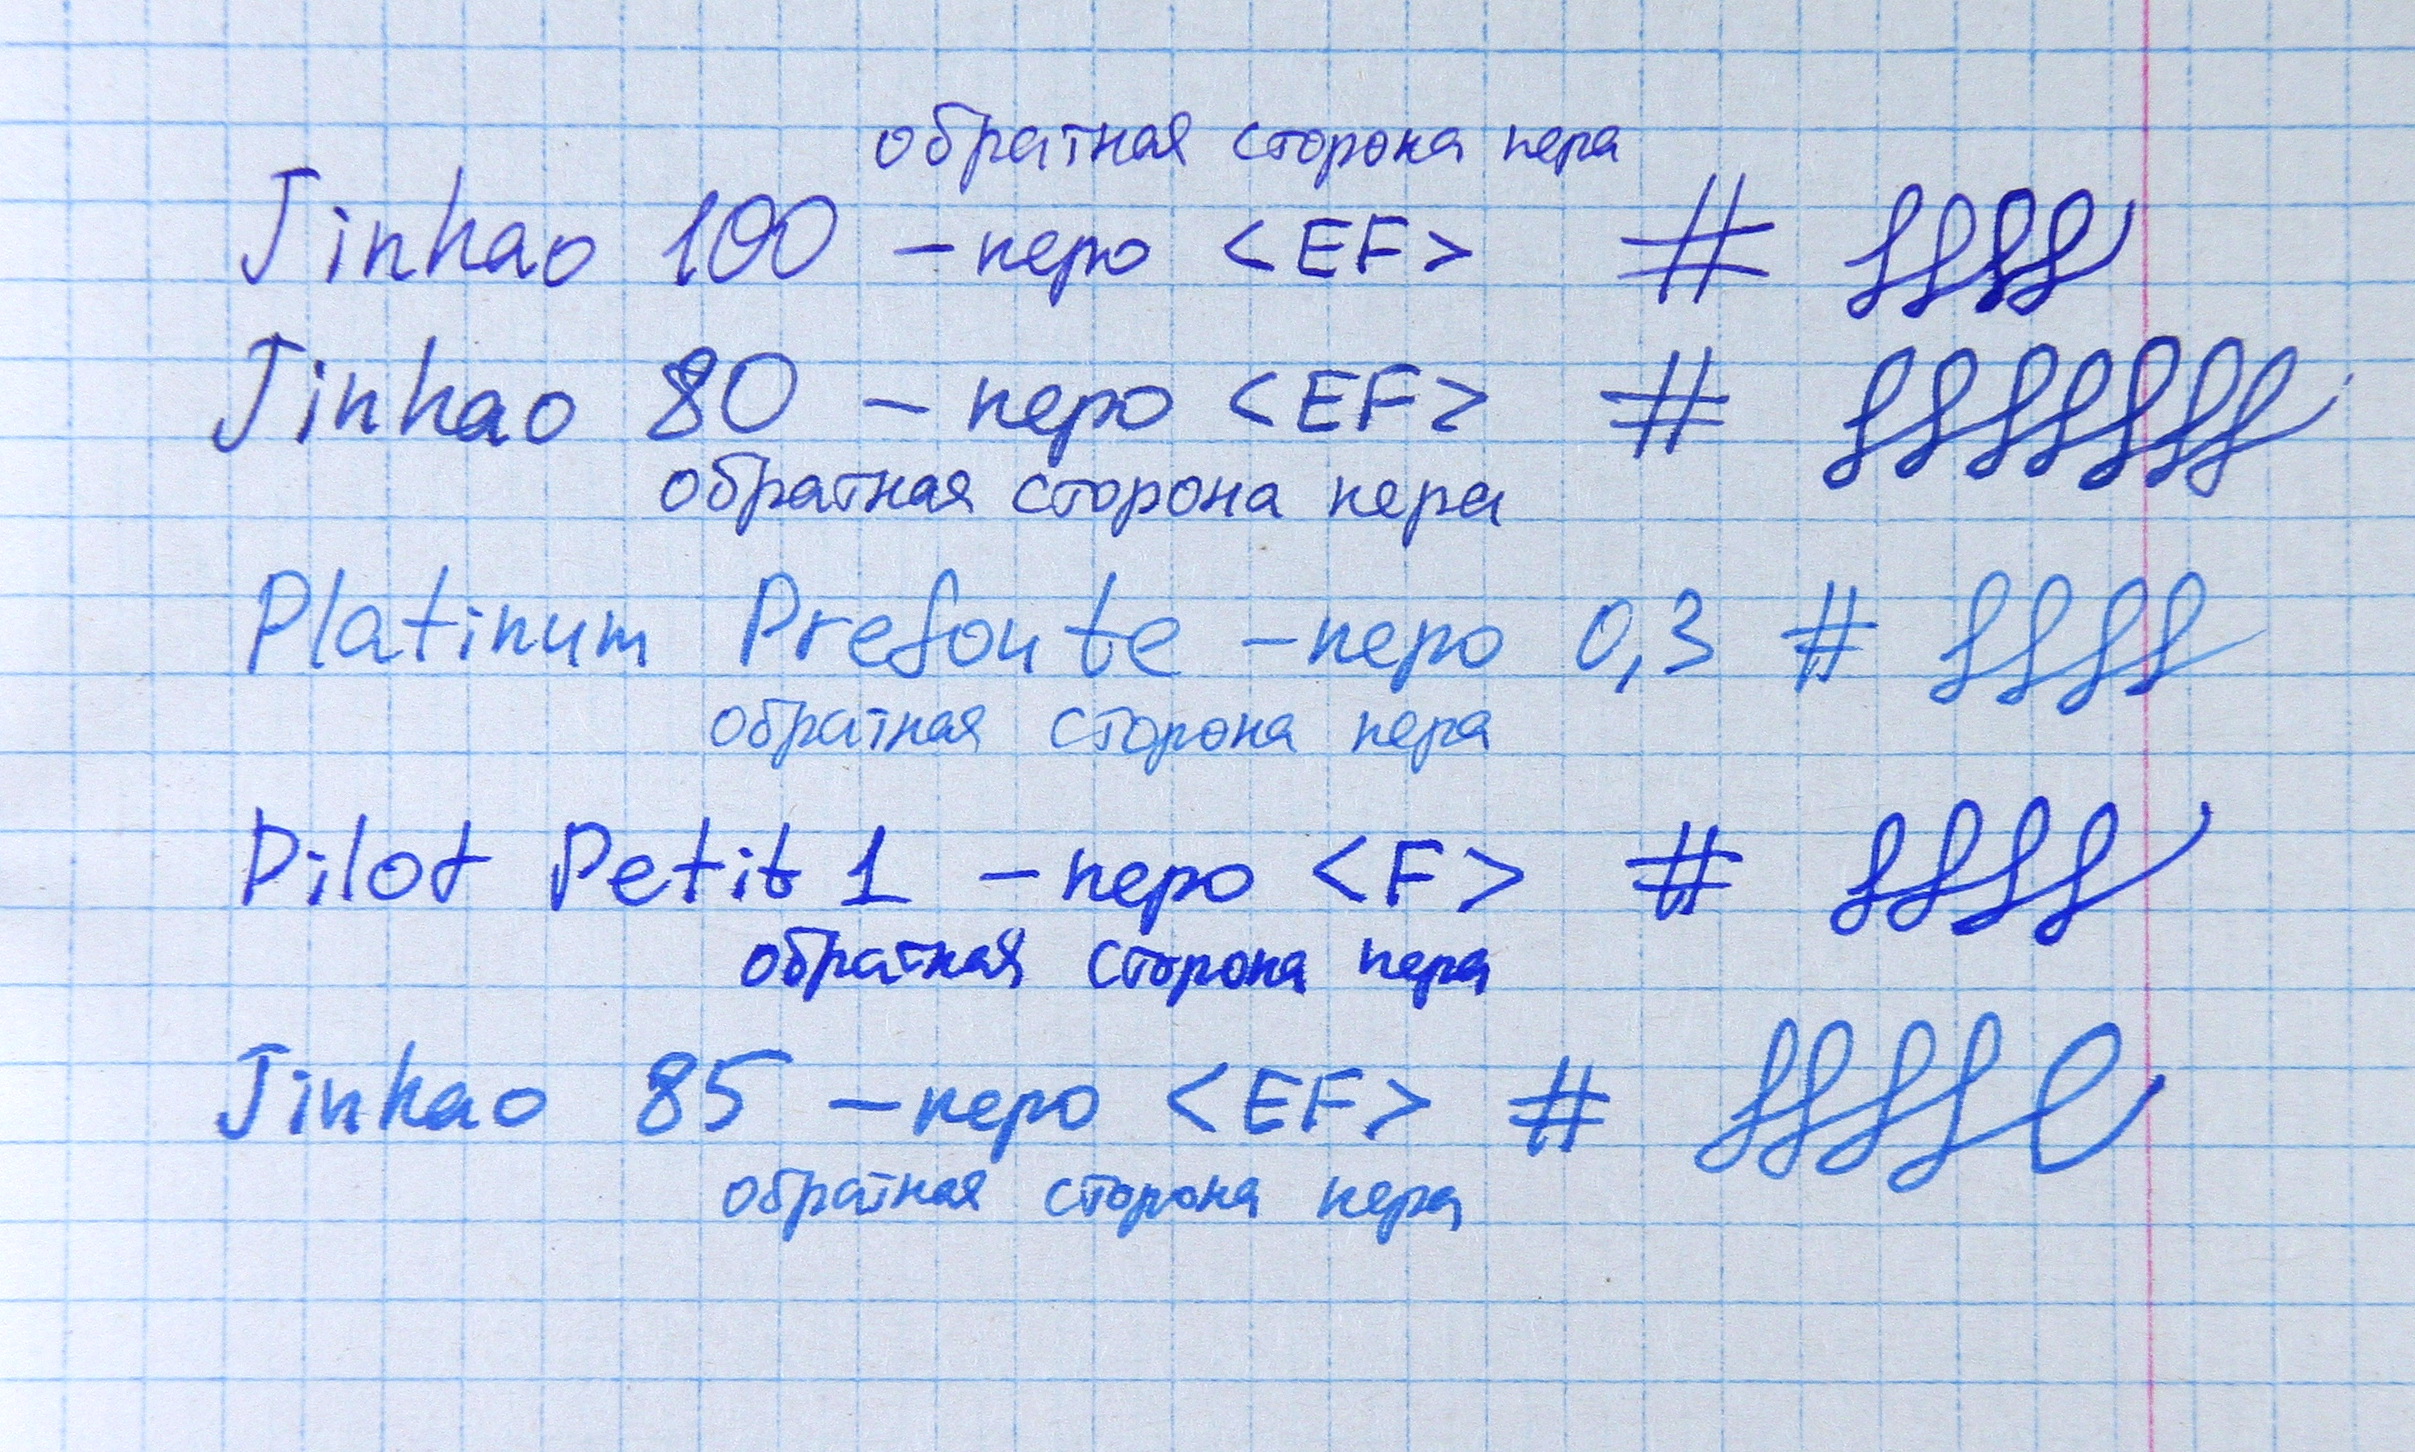 обратная сторона пера
Jinhao 100 – перо <EF> #
Jinhao 80 – перо <EF> #
обратная сторона пера
Platinum Prefounte – перо 0,3 #
обратная сторона пера
Pilot Petit 1 – перо <F> #
обратная сторона пера
Jinhao 85 – перо <EF> #
обратная сторона пера